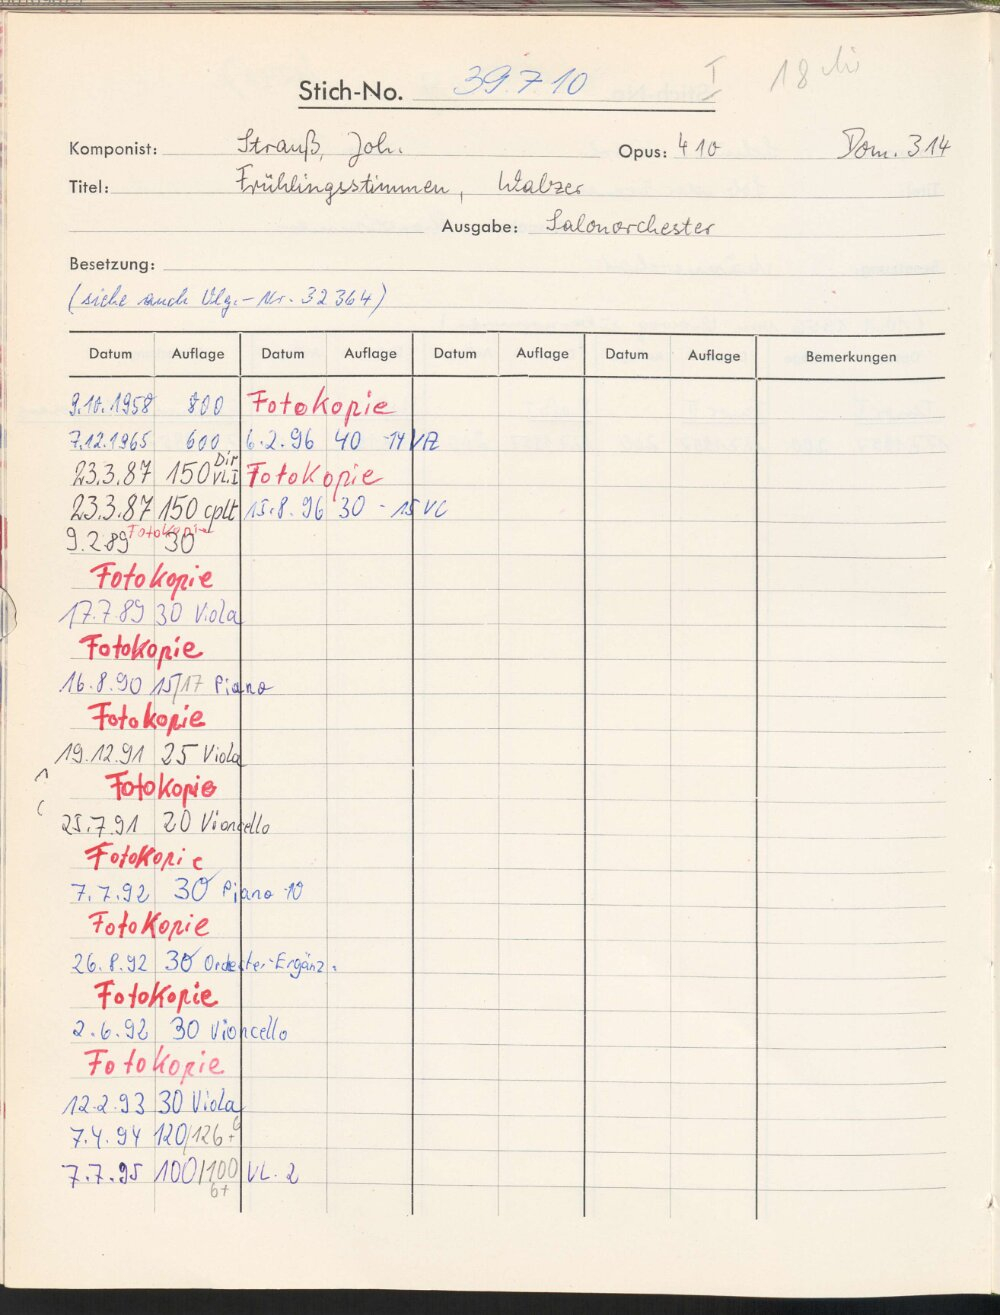 Stich-No. 39710 I
Komponist: Strauß, Joh. Opus: 410 Dom. 314
Titel: Frühlingsstimmen, Walzer
Ausgabe: Salonorchester
Besetzung:
(siehe auch Vlg.-Nr. 32364)
Datum Auflage Datum Auflage Datum Auflage Datum Auflage Bemerkungen
9.10.1958 800 Fotokopie
7.12.1965 600 6.2.96 40 -14 VA
23.3.87 150 Dir VL.I Fotokopie
23.3.87 150 cplt 15.8.96 30 - 15 VC
9.2.89 Fotokopie 30
Fotokopie
17.7.89 30 Viola
Fotokopie
16.8.90 15/17 Piano
Fotokopie
19.12.91 25 Viola
Fotokopie
25.7.91 20 Violoncello
Fotokopie
7.7.92 30 Piano 10
Fotokopie
26.8.92 30 Orchester-Ergänz.
Fotokopie
2.6.92 30 Violoncello
Fotokopie
12.2.93 30 Viola
7.4.94 120/126+6
7.7.95 100/100 VL. 2
6+